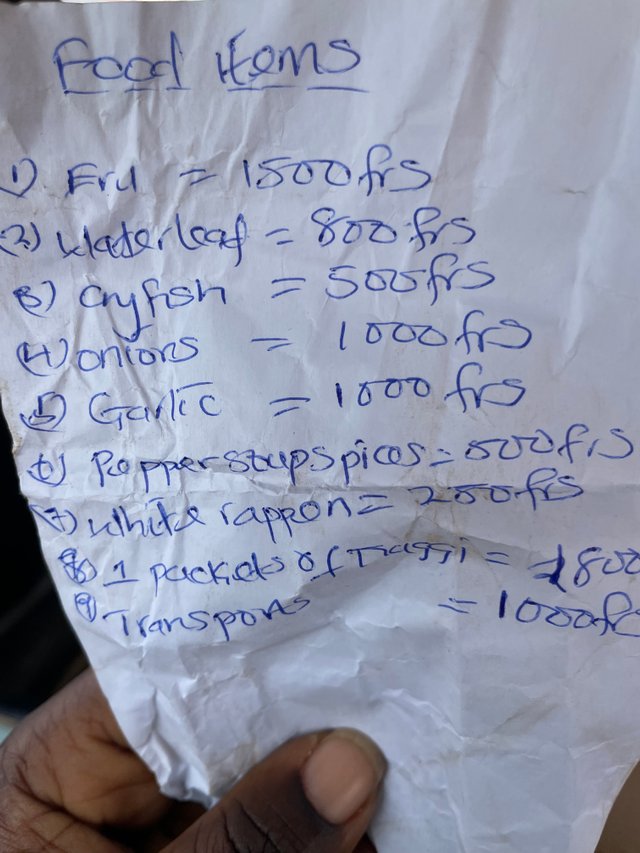 Food items
1) Eru = 1500frs
2) Waterleaf = 800 frs
3) Cryfish = 500frs
4) onions = 1000 frs
5) Garlic = 1000 frs
6) Pepper soup spices = 500frs
7) white rappon = 200frs
8) 1 packets of maggi = 1800
9) Transports = 1000fr